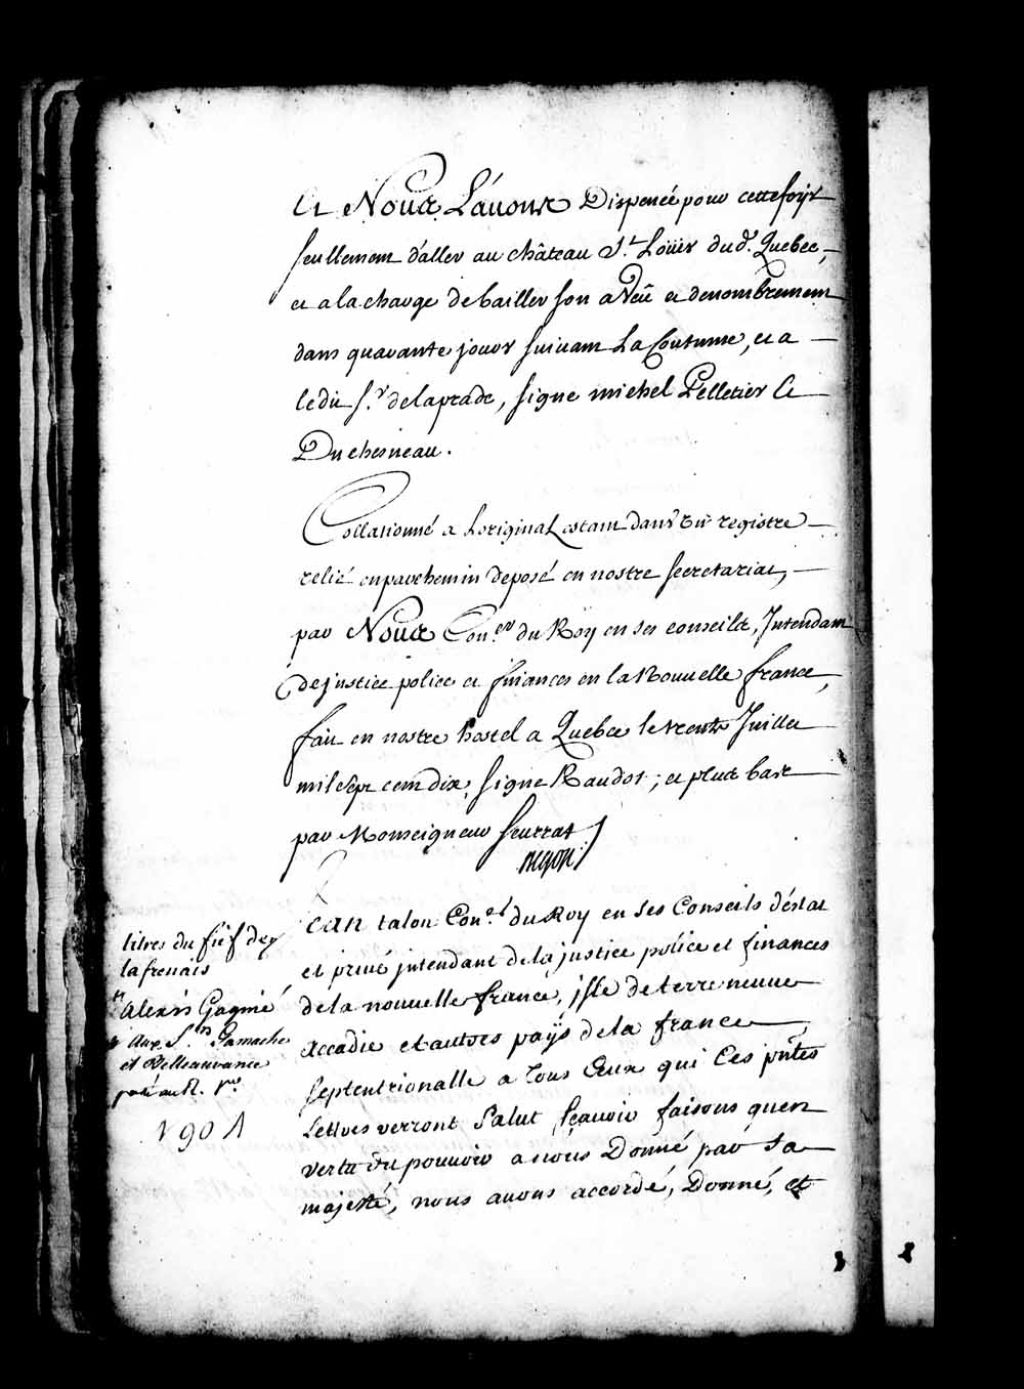 Et Nous L'avons Dispencé pour cette fois
seullement d'aller au château St. Loüis dud. Quebec,
et a la charge de bailler son aveü et denombrement
dans quarante jours suivant La Coutume, et a
ledit Sr. de laprade, signe michel Pelletier Et
Duchesneau.
Collationné a Loriginal estant dans un registre
relié en parchemin deposé en nostre secretariat,
par Nous Coner. du Roy en ses conseils, Intendant
de justice police et finances en la Nouvelle france,
fait en nostre hostel a Quebec le trente Juillet
mil sept cent dix, signe Raudot; et plus bas
par Monseigneur Seurrat
Begon
Jean talon Coner. du Roy en ses Conseils d'éstat
et privé jntendant de la justice police et finances
de la nouvelle france, jsle de terre neuve
accadie et autres païs de la france
septentrionalle a tous Ceux qui Ces pntes
Lettres verront Salut, sçavoir faisons qu'en
vertu du pouvoir a nous Donné par sa
majesté, nous avons accordé, Donné, et
titres du fief de
la frenais
Alexis Gagnié
Aux Srs. Gamache
et Belleavance
N 90 A